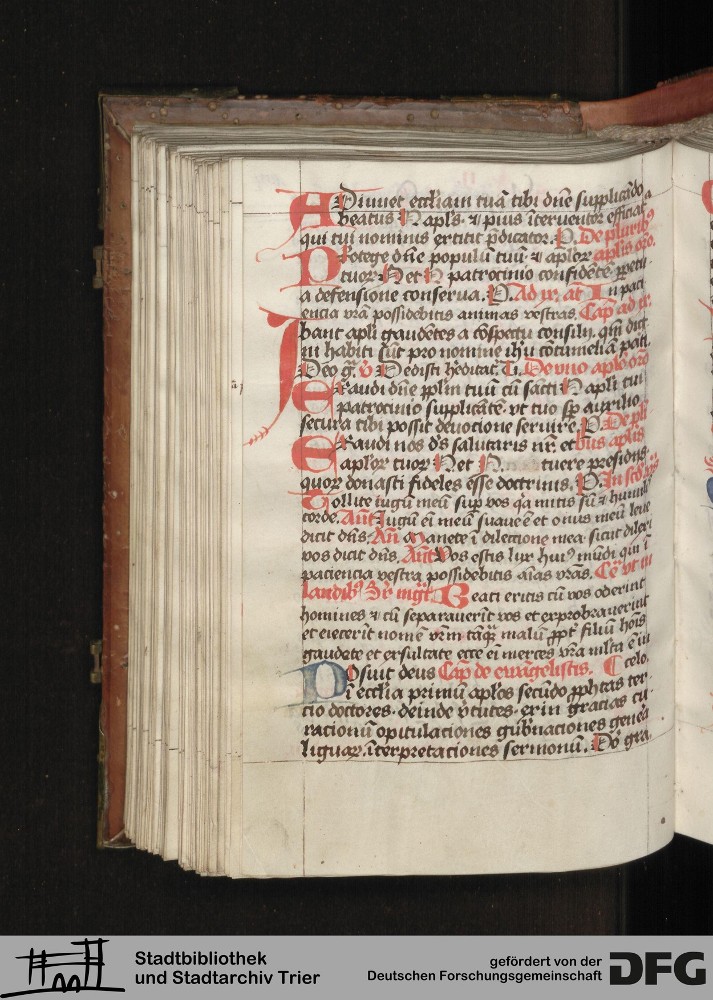 Adiuuet eccliam tuā tibi dn̄e supplicādo
beatus N apls̄ ⁊ pius īteruentor efficiat᷑
qui tui nominis extitit p̄dicator. P. De pluribꝰ
Protege dn̄e populū tuū ⁊ aplor̄ aplis or̄o.
tuor̄ N et N patrocinio confidētē ꝑpetu
a defensione conserua. P. Ad In paci
encia vr̄a possidebitis animas vestras. Cap̄ ad
Ibant apli gaudētes a cōspectu consilij. qm̄ dig
ni habiti sūt pro nomine ihū cōtumeliā pati.
Deo gr̄. v̄ Dedisti hēditat̄. De vno aplō or̄o
Exaudi dn̄e pplm̄ tuū cū sācti N apli tui
patrocinio supplicātē. vt tuo sp̄ auxilio
secura tibi possit deuocione seruire. P. De pli
Exaudi nos d̄s salutaris nr̄. et bus aplis
aplor̄ tuor̄ N et N. tuere presidijs.
quor̄ donasti fideles esse doctrinis. P. In scd̄
Tollite iugū meū sup vos q̄a mitis sū ⁊ humil
corde. Ant̄ Iugū ei meū suaue ē et onus meū leue
dicit dn̄s. An̄ Manete ī dilectione mea. sicut dilexi
vos dicit dn̄s. Ant̄ Vos estis lux huiꝰ mūdi qui ī
paciencia vestra possidebitis aīas vr̄as. vt in
laudibꝰ Beati eritis cū vos oderint
homines ⁊ cū separauerīt vos et exprobrauerint
et eiecerīt nomē vr̄m tāq̄ malū ꝓpt̄ filiū hoīs
gaudete et exsultate ecce ei merces vr̄a mlta ē in
Posuit deus Cap̄ de ewāgelistis. C celo.
ī ecclia primū aplōs secūdo ꝓphtas ter
cio doctores. deinde v̄tutes. exin gracias cu
racionū opitulaciones gub̄naciones genera
liguar̄. īterpretaciones sermonū. Dō gr̄a
Stadtbibliothek
und Stadtarchiv Trier
gefördert von der
Deutschen Forschungsgemeinschaft DFG